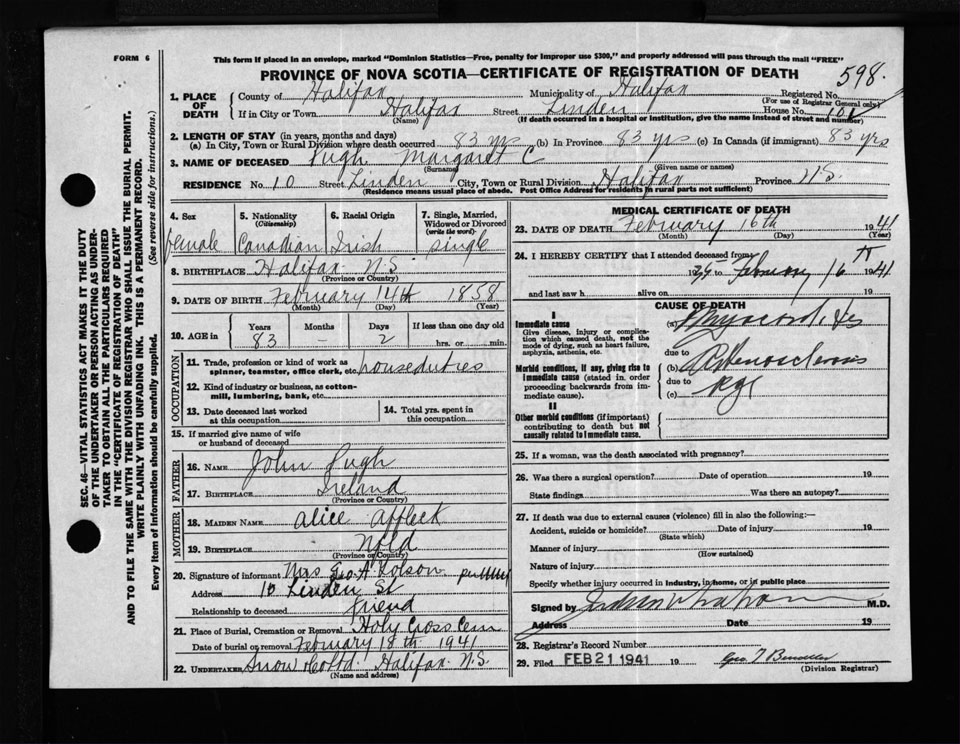 FORM 6
This form if placed in an envelope, marked "Dominion Statistics—Free, penalty for improper use $300," and properly addressed will pass through the mail "FREE"
PROVINCE OF NOVA SCOTIA—CERTIFICATE OF REGISTRATION OF DEATH
598.
1. PLACE OF DEATH
County of Halifax Municipality of Halifax Registered No.
(For use of Registrar General only)
If in City or Town Halifax Street Linden House No. 10
(Name) (If death occurred in a hospital or institution, give the name instead of street and number)
2. LENGTH OF STAY (in years, months and days)
(a) In City, Town or Rural Division where death occurred 83 yrs (b) In Province 83 yrs (c) In Canada (if immigrant) 83 yrs
3. NAME OF DECEASED Pugh Margaret C
(Surname) (Given name or names)
RESIDENCE No. 10 Street Linden City, Town or Rural Division Halifax Province N.S.
(Residence means usual place of abode. Post Office Address for residents in rural parts not sufficient)
4. Sex
female
5. Nationality (Citizenship)
Canadian
6. Racial Origin
Irish
7. Single, Married, Widowed or Divorced (write the word)
single
8. BIRTHPLACE Halifax N.S.
(Province or Country)
9. DATE OF BIRTH February 14th 1858
(Month) (Day) (Year)
10. AGE in Years Months Days If less than one day old
83 – 2 hrs. or min.
OCCUPATION
11. Trade, profession or kind of work as spinner, teamster, office clerk, etc. houseduties
12. Kind of industry or business, as cotton-mill, lumbering, bank, etc.
13. Date deceased last worked at this occupation
14. Total yrs. spent in this occupation
15. If married give name of wife or husband of deceased
FATHER
16. NAME John Pugh
17. BIRTHPLACE Ireland
(Province or Country)
MOTHER
18. MAIDEN NAME Alice Affleck
19. BIRTHPLACE Nfld
(Province or Country)
20. Signature of informant Mrs Geo. A.
Address 10 Linden St
Relationship to deceased friend
21. Place of Burial, Cremation or Removal Holy Cross Cem
Date of burial or removal February 18th 1941
22. UNDERTAKER Snow & Co Ltd. Halifax N.S.
(Name and address)
MEDICAL CERTIFICATE OF DEATH
23. DATE OF DEATH February 16th 1941
(Month) (Day) (Year)
24. I HEREBY CERTIFY that I attended deceased from
19 to February 16 1941
and last saw h alive on 19
CAUSE OF DEATH
I
Immediate cause
Give disease, injury or complication which caused death, not the mode of dying, such as heart failure, asphyxia, asthenia, etc.
(a) Myocarditis
due to
Morbid conditions, if any, giving rise to immediate cause (stated in order proceeding backwards from immediate cause)
(b) Arteriosclerosis
due to
(c) Age
II
Other morbid conditions (if important) contributing to death but not causally related to immediate cause.
25. If a woman, was the death associated with pregnancy?
26. Was there a surgical operation? Date of operation 19
State findings Was there an autopsy?
27. If death was due to external causes (violence) fill in also the following:—
Accident, suicide or homicide? Date of injury 19
(State which)
Manner of injury
(How sustained)
Nature of injury
Specify whether injury occurred in industry, in home, or in public place
Signed by M.D.
Address Date 19
28. Registrar's Record Number
29. Filed FEB 21 1941 19
(Division Registrar)
SEC. 46—VITAL STATISTICS ACT MAKES IT THE DUTY
OF THE UNDERTAKER OR PERSON ACTING AS UNDER-
TAKER TO OBTAIN ALL THE PARTICULARS REQUIRED
IN THE "CERTIFICATE OF REGISTRATION OF DEATH"
AND TO FILE THE SAME WITH THE DIVISION REGISTRAR WHO SHALL ISSUE THE BURIAL PERMIT.
WRITE PLAINLY WITH UNFADING INK. THIS IS A PERMANENT RECORD.
Every item of information should be carefully supplied. (See reverse side for instructions.)